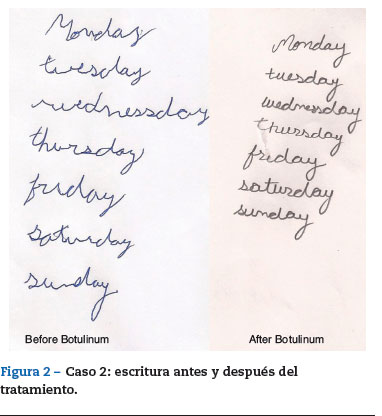 Monday
tuesday
wednessday
thursday
friday
saturday
sunday
Before Botulinum
Monday
tuesday
wednessday
thursday
friday
saturday
sunday
After Botulinum
Figura 2 – Caso 2: escritura antes y después del
tratamiento.